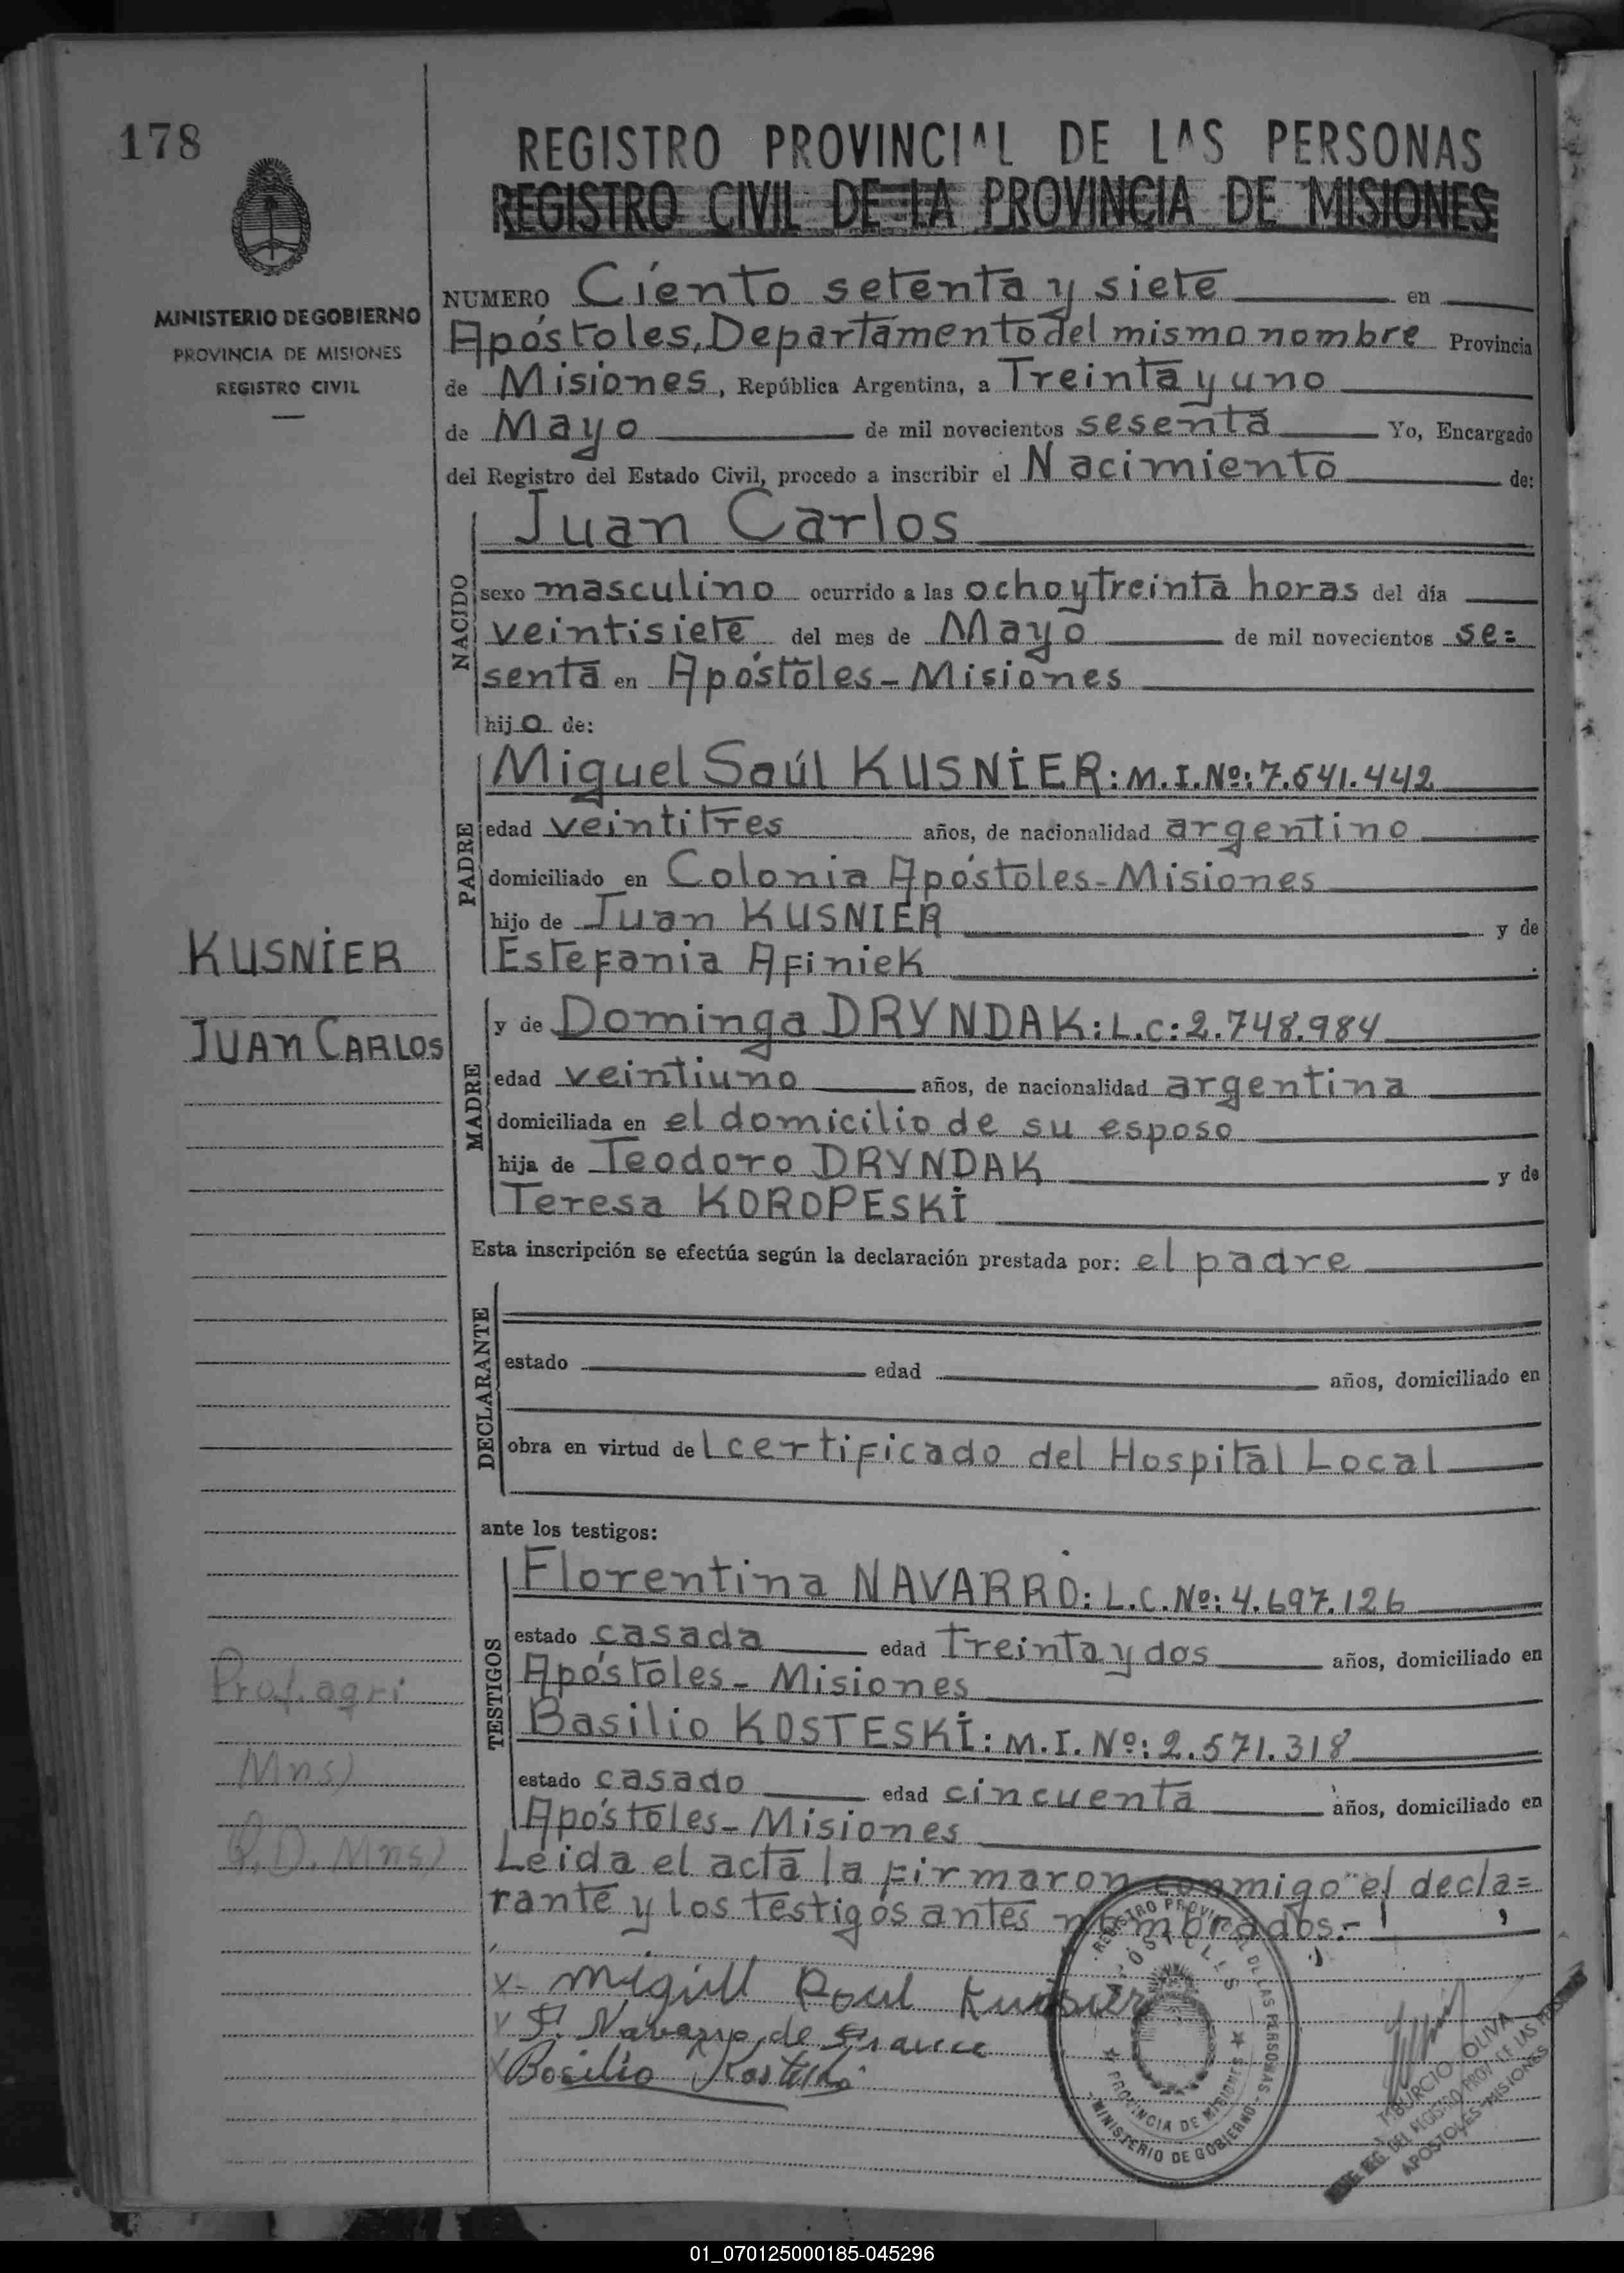 178
REGISTRO PROVINCIAL DE LAS PERSONAS
REGISTRO CIVIL DE LA PROVINCIA DE MISIONES
MINISTERIO DE GOBIERNO
PROVINCIA DE MISIONES
REGISTRO CIVIL
NUMERO Ciento setenta y siete en
Apóstoles, Departamento del mismo nombre Provincia
de Misiones, República Argentina, a Treinta y uno
de Mayo de mil novecientos sesenta Yo, Encargado
del Registro del Estado Civil, procedo a inscribir el Nacimiento de:
Juan Carlos
NACIDO
sexo masculino ocurrido a las ocho y treinta horas del día
veintisiete del mes de Mayo de mil novecientos se=
senta en Apóstoles-Misiones
hijo de:
PADRE
Miguel Saúl KUSNIER: M.I.Nº: 7.541.442
edad veintitres años, de nacionalidad argentino
domiciliado en Colonia Apóstoles-Misiones
hijo de Juan KUSNIER y de
Estefania Afiniek
KUSNIER
JUAN CARLOS
MADRE
y de Dominga DRYNDAK: L.C: 2.748.984
edad veintiuno años, de nacionalidad argentina
domiciliada en el domicilio de su esposo
hija de Teodoro DRYNDAK y de
Teresa KOROPESKI
Esta inscripción se efectúa según la declaración prestada por: el padre
DECLARANTE
estado edad años, domiciliado en
obra en virtud del certificado del Hospital Local
ante los testigos:
TESTIGOS
Florentina NAVARRO: L.C.Nº: 4.697.126
estado casada edad Treinta y dos años, domiciliado en
Apóstoles-Misiones
Basilio KOSTESKI: M.I.Nº: 2.571.318
estado casado edad cincuenta años, domiciliado en
Apóstoles-Misiones
Prof. agri
Mns)
Q.D. Mns)
Leida el acta la firmaron conmigo el decla=
rante y los testigos antes nombrados.-
x- Kusnier
x F. Navarro de
x Basilio Kosteski
REGISTRO PROVINCIAL DE LAS PERSONAS
APÓSTOLES
PROVINCIA DE MISIONES
MINISTERIO DE GOBIERNO
TIBURCIO OLIVA
ENC. REG. DEL REGISTRO PROV. DE LAS PERSONAS
APOSTOLES-MISIONES
01_070125000185-045296